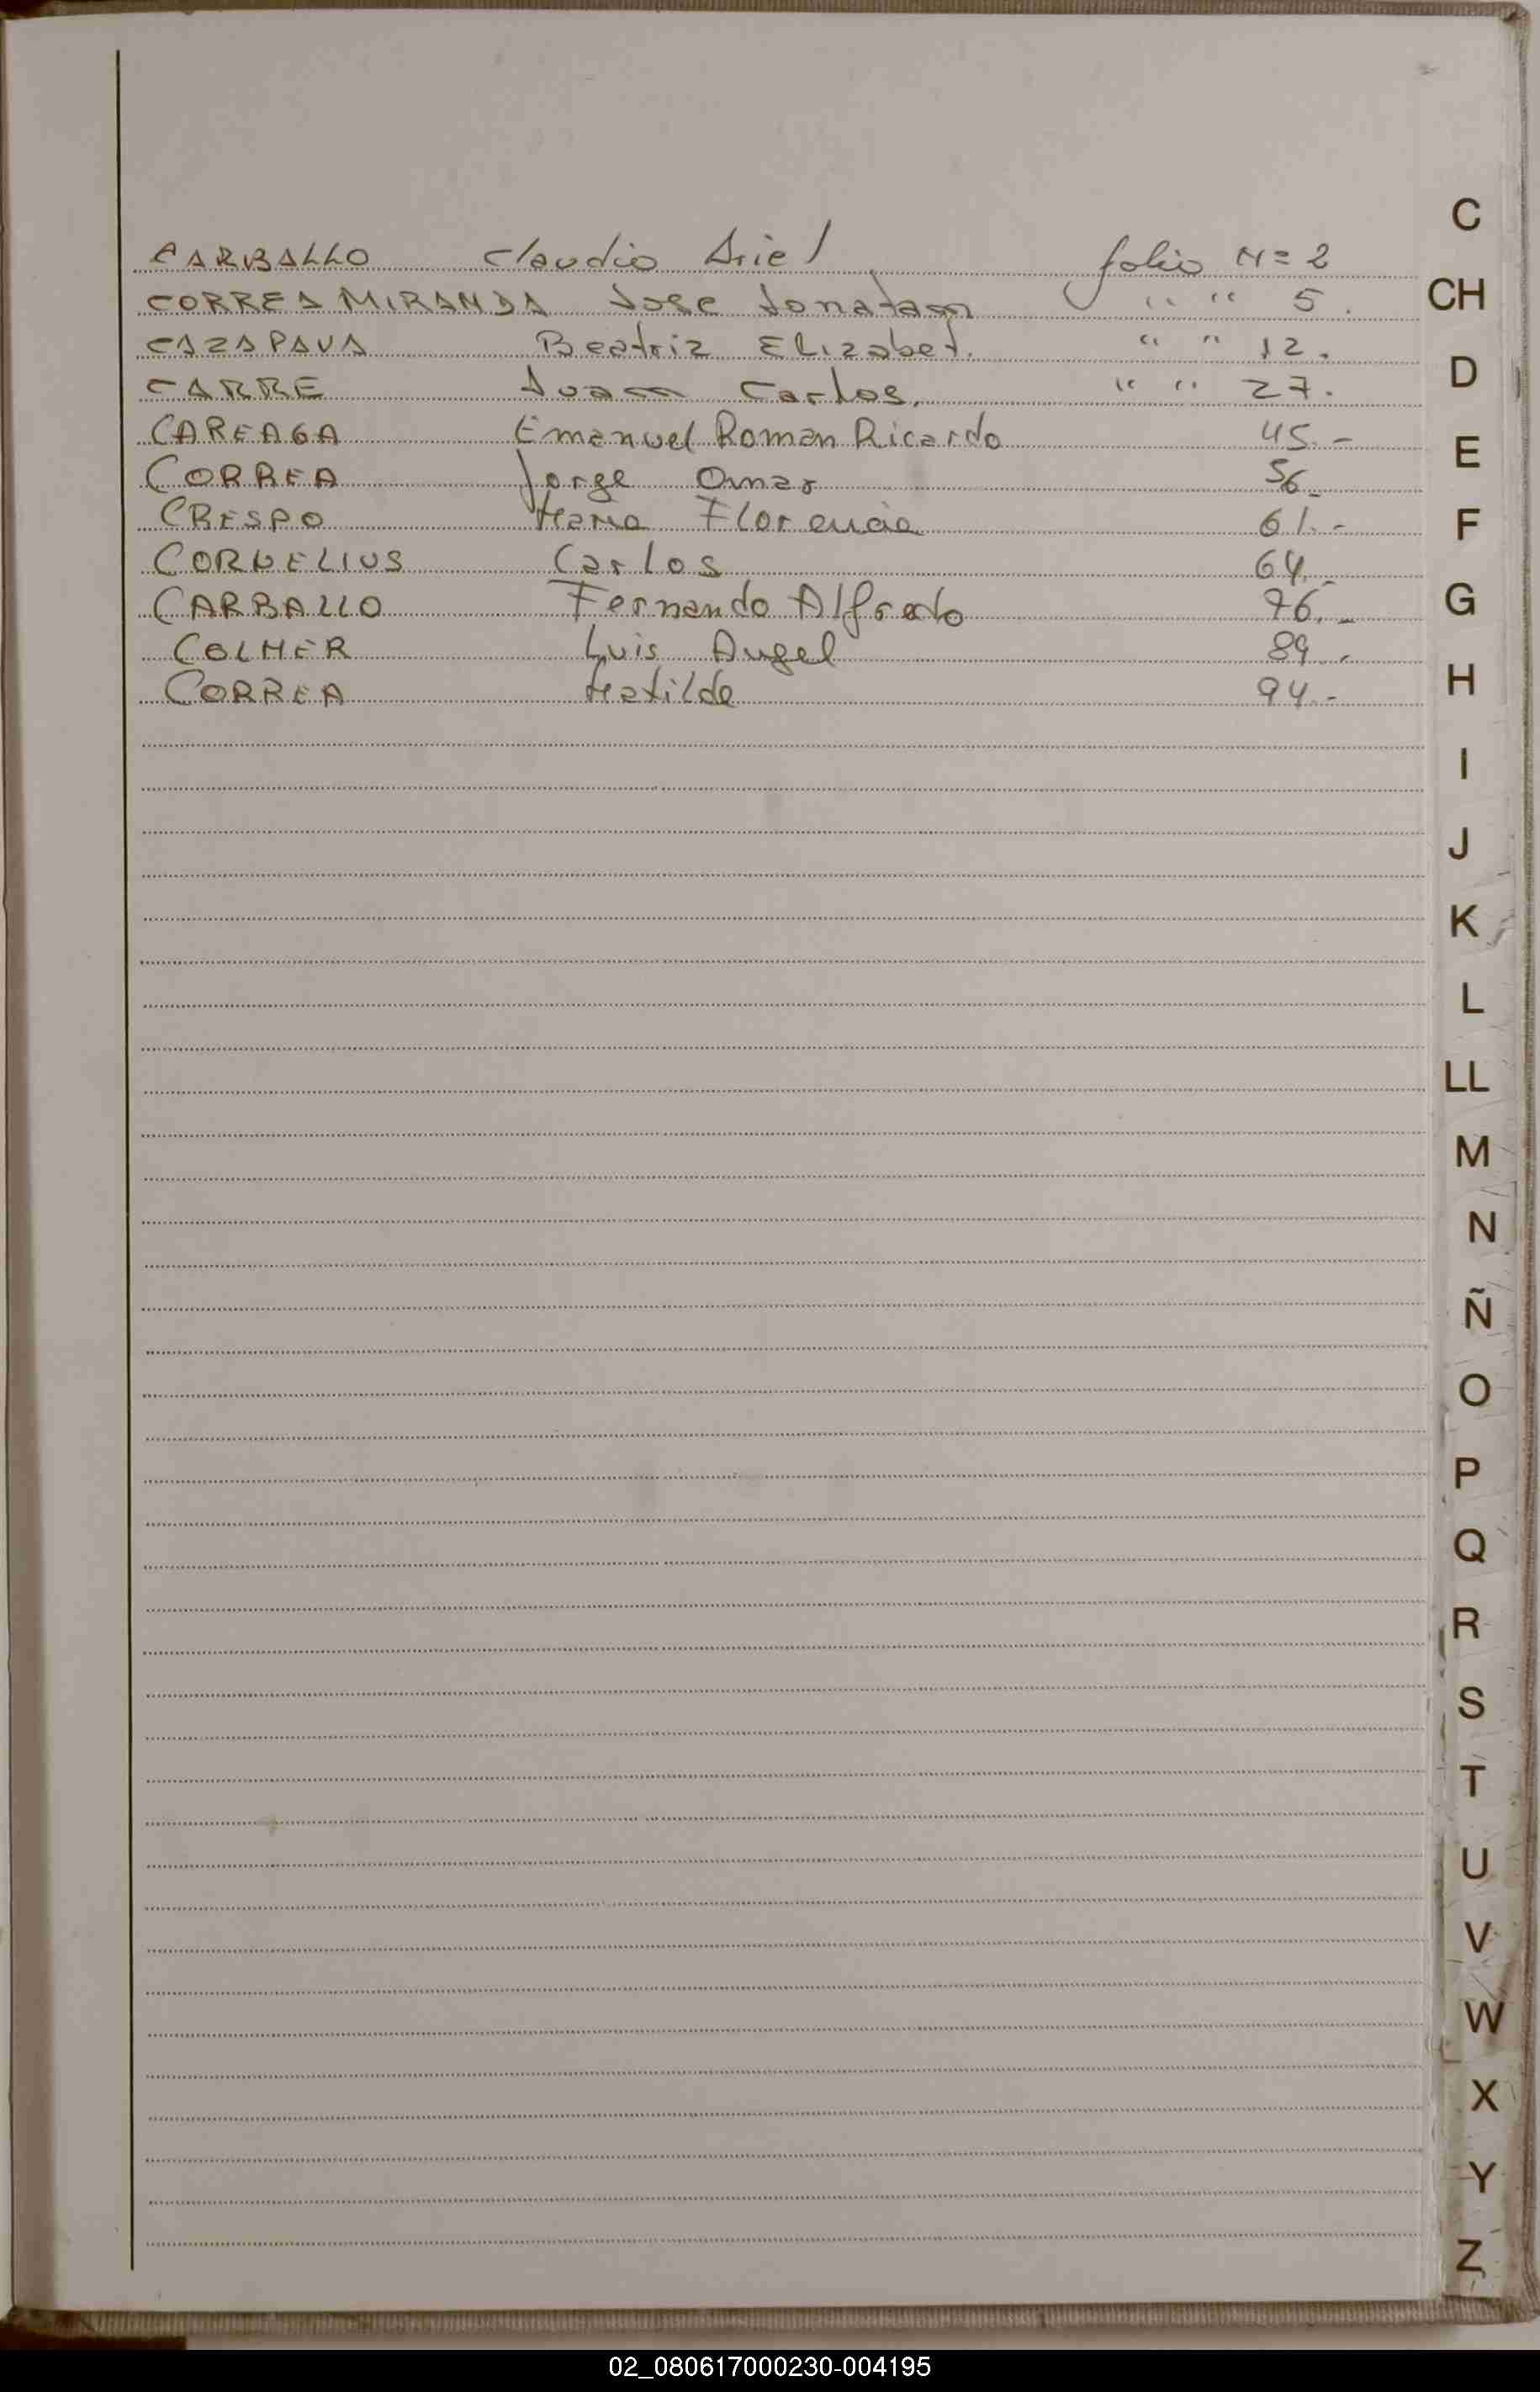 CARBALLO Claudio Ariel folio N= 2
CORREA MIRANDA Jose Jonatam " " 5.
CAZAPAVA Beatriz Elizabet. " " 12.
CARRE Juan Carlos. " " 27.
CAREAGA Emanuel Roman Ricardo 45.-
CORREA Jorge Omar 56_
CRESPO Maria Florencia 61.-
CORNELIUS Carlos 64.-
CARBALLO Fernando Alfredo 76._
COLMER Luis Angel 89.-
CORREA Matilde 94.-
C
CH
D
E
F
G
H
I
J
K
L
LL
M
N
Ñ
O
P
Q
R
S
T
U
V
W
X
Y
Z
02_080617000230-004195